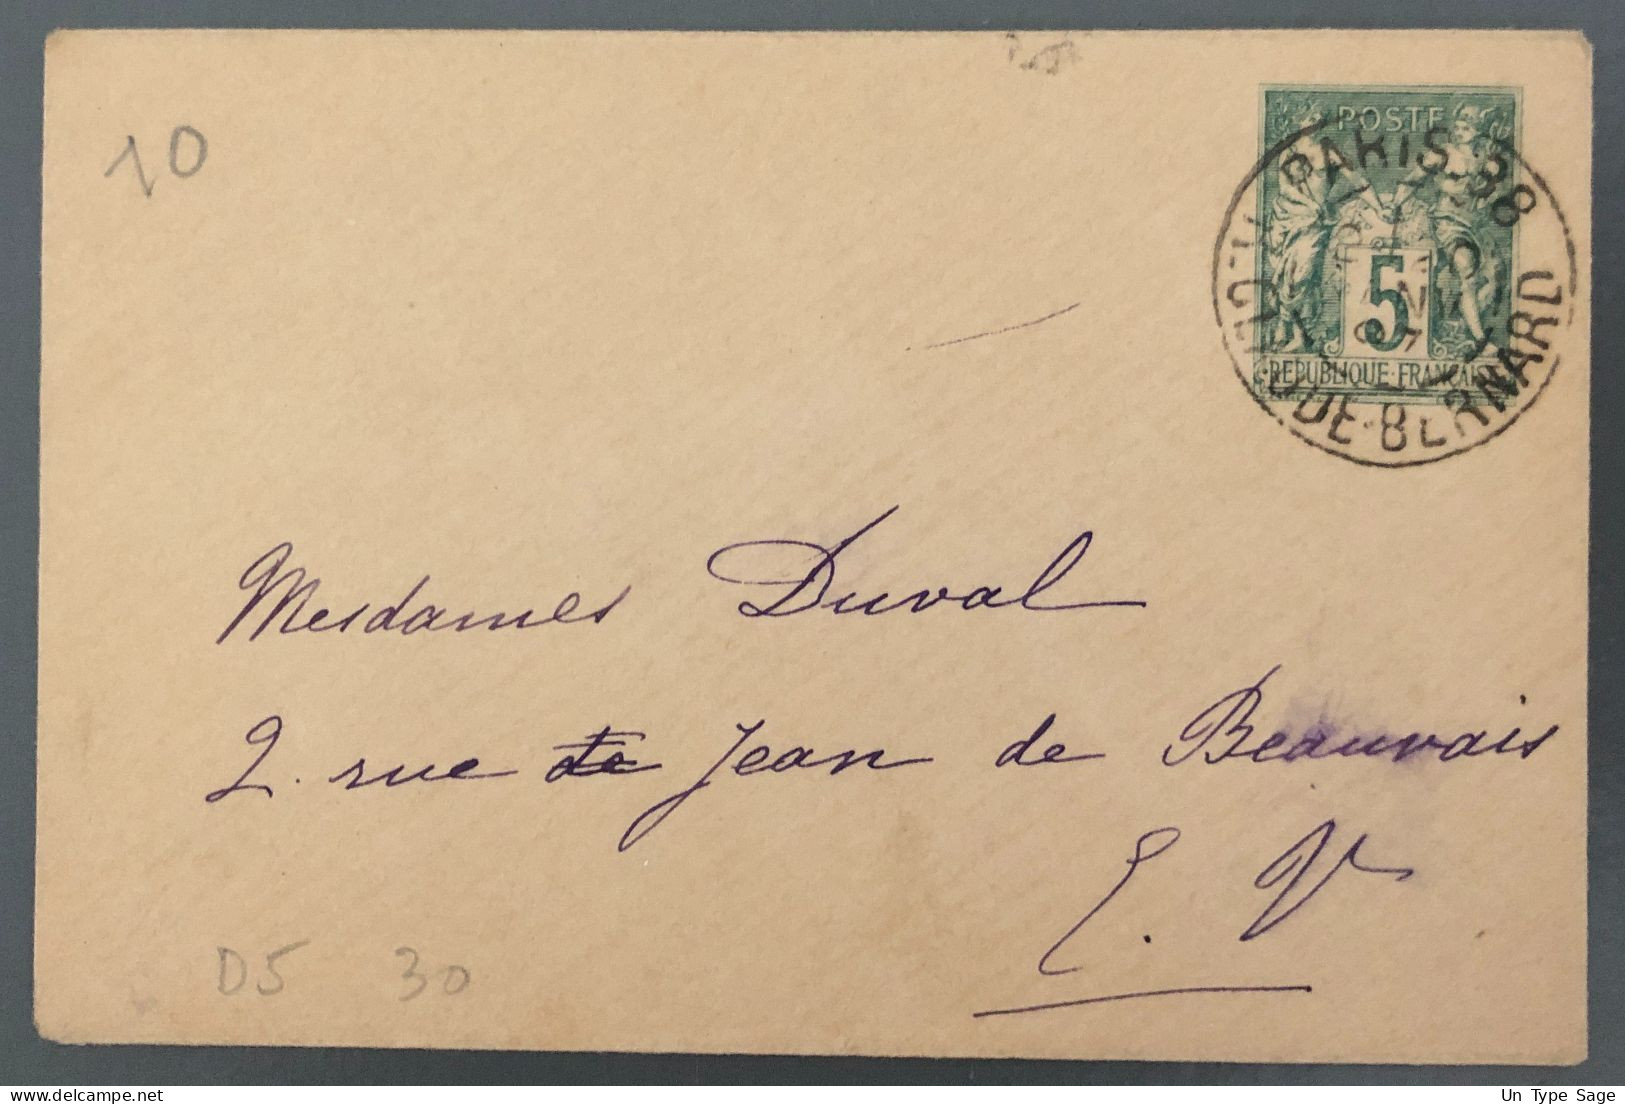 10
POSTE
5
REPUBLIQUE FRANCAISE
PARIS-38
R. CLAUDE-BERNARD
JANV
97
Mesdames Duval
2. rue de Jean de Beauvais
E. V.
D5 30
delcampe.net
Un Type Sage